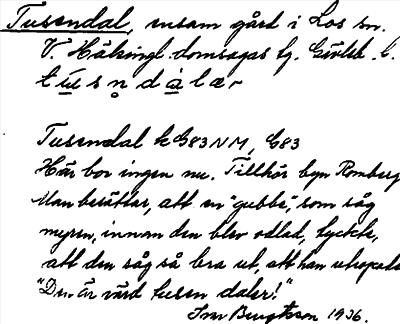 Tusendal, ensam gård i Los sn.
V. Hälsingl. domsagas tg. Gävleb. l.
t ū s n̥ d à l æ r
Tusendal k G83 NM, G83
Här bor ingen nu. Tillhör byn Romberg
Man berättar, att en "gubbe", som såg
myren, innan den blev odlad, tyckte,
att den såg så bra ut, att han utropade
"Den är värd tusen daler!"
Ivar Bengtsson 1936.